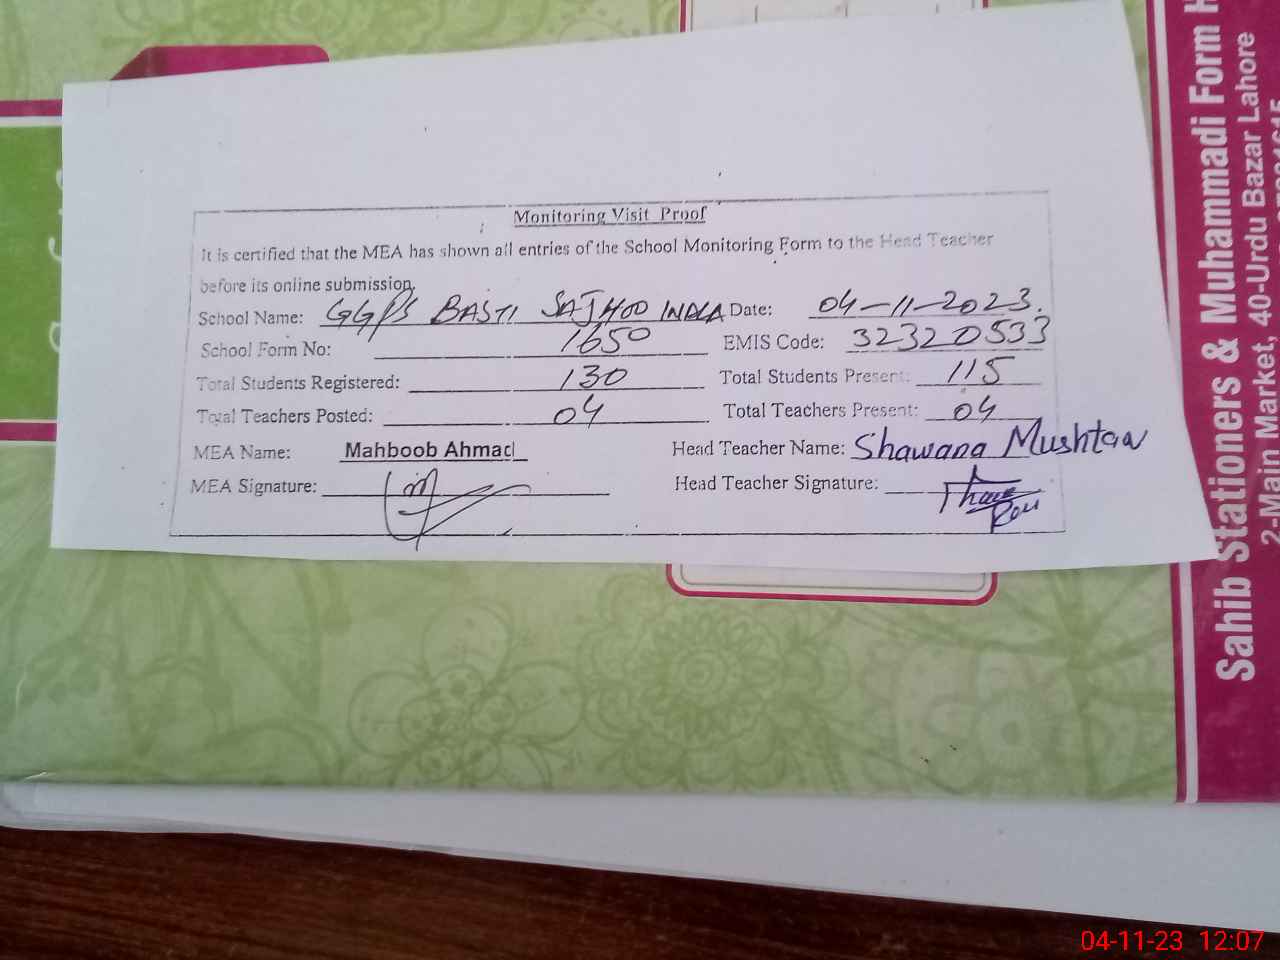 Monitoring Visit Proof
It is certified that the MEA has shown all entries of the School Monitoring Form to the Head Teacher
before its online submission.
School Name: GGPS BASTI SAJHOO INDLA Date: 04-11-2023.
School Form No: 1650 EMIS Code: 32320533
Total Students Registered: 130 Total Students Present: 115
Total Teachers Posted: 04 Total Teachers Present: 04
MEA Name: Mahboob Ahmad Head Teacher Name: Shawana Mushtaq
MEA Signature: Head Teacher Signature:
Sahib Stationers & Muhammadi Form H
2-Main Market, 40-Urdu Bazar Lahore
04-11-23 12:07